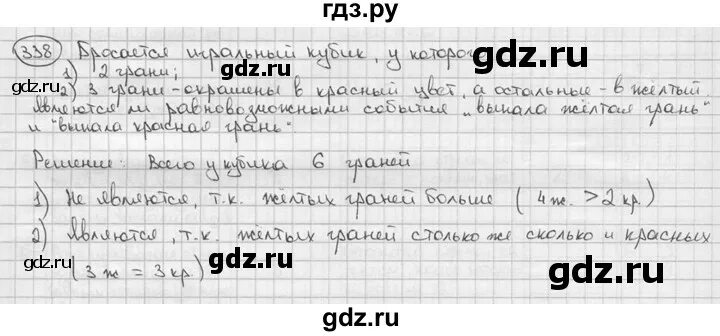 гдз.ру
338 Бросается игральный кубик, у которого
1) 2 грани;
2) 3 грани - окрашены в красный цвет, а остальные - в жёлтый.
Являются ли равновозможными события „выпала жёлтая грань"
и "выпала красная грань"
Решение: Всего у кубика 6 граней
1) Не являются, т.к. жёлтых граней больше (4ж. > 2 кр.)
2) Являются, т.к. жёлтых граней столько же сколько и красных
(3 ж = 3 кр.)
gdz.ru gdz.ru gdz.ru
gdz.ru gdz.ru gdz.ru
gdz.ru gdz.ru
gdz.ru